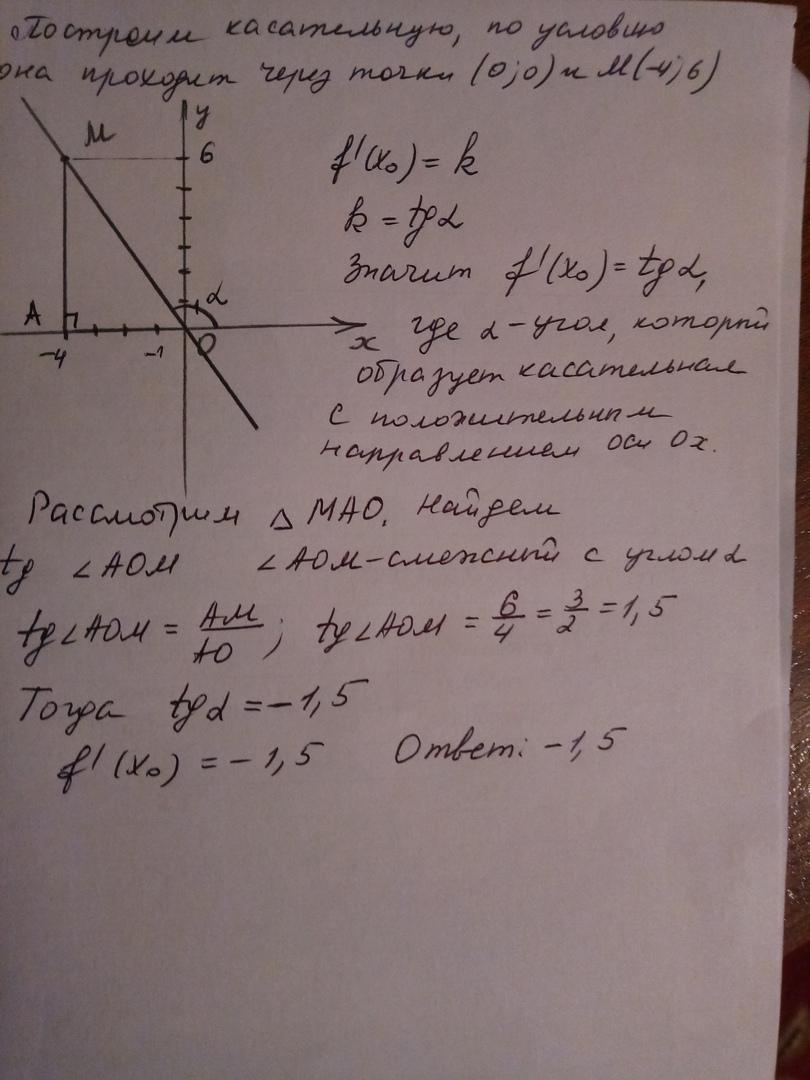 Построим касательную, по условию
она проходит через точки (0;0) и М(-4;6)
у
М
6
f'(x₀) = k
k = tgα
Значит f'(x₀) = tgα,
A
α
-4
-1
O
x
где α - угол, который
образует касательная
с положительным
направлением оси Ох.
Рассмотрим △ МАО, найдем
tg ∠АОМ ∠АОМ - смежный с углом α
tg∠АОМ = АМ/АО ; tg∠АОМ = 6/4 = 3/2 = 1,5
Тогда tgα = -1,5
f'(x₀) = -1,5 Ответ: -1,5